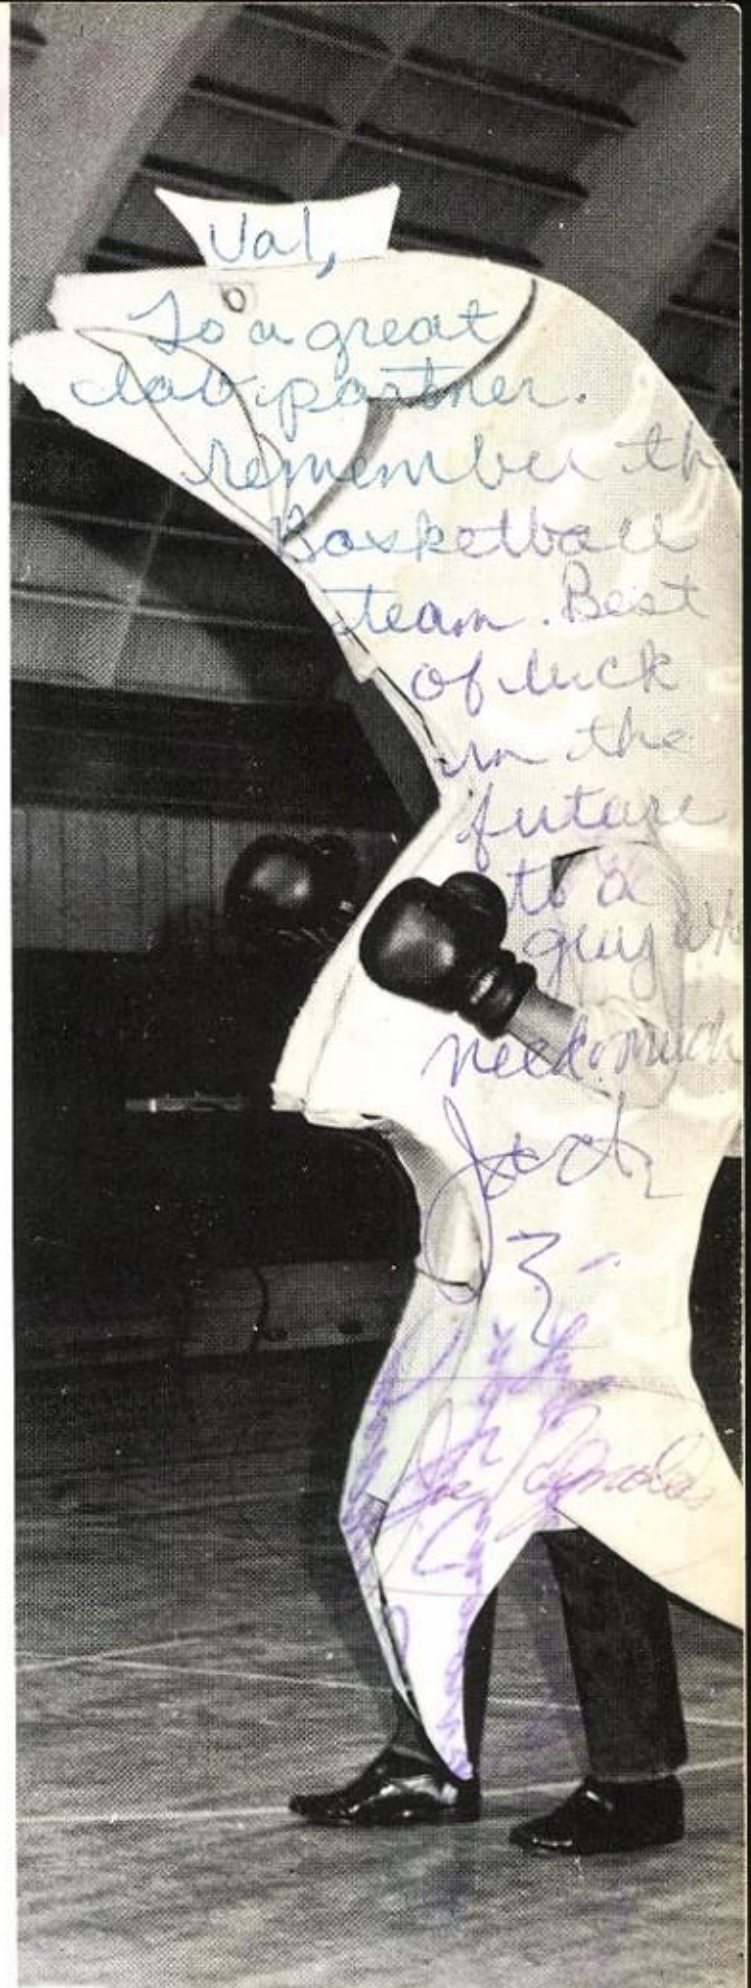 Val,
To a great
lab partner.
remember th
Basketball
team. Best
of luck
in the
future
to a
guy who
needs much
Jack
Joe Reynolds